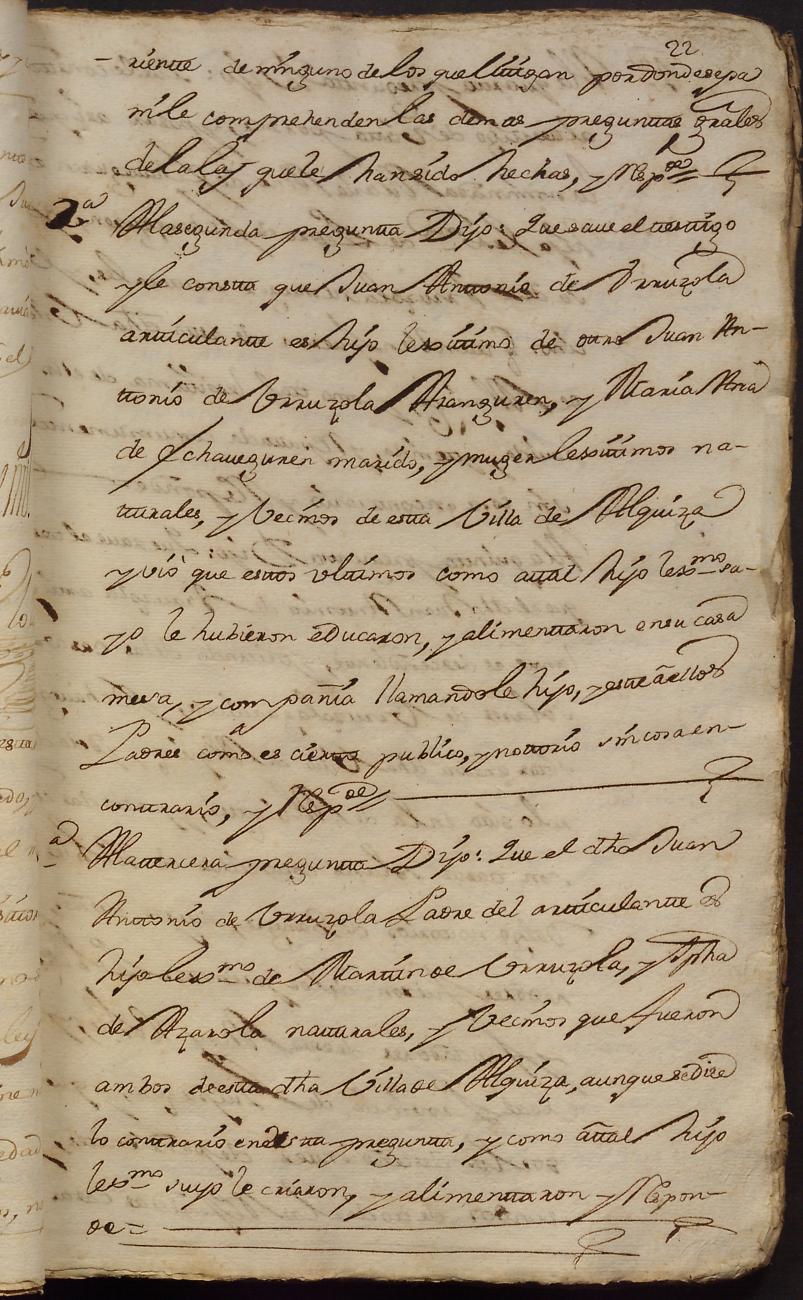 22
riente de ninguno de los que lítigan por donde sepa
nile comprehenden las demas preguntas grâles
de la ley que le han sido hechas, y Resp.de
2.a A la segunda pregunta Dijo: Que save el testigo
y le consta que Juan Antonio de Urruzola
articulante es hijo lexitimo de otro Juan An-
tonio de Urruzola Aranguren, y Maria Ana
de Echaveguren marido, y muger lexitimos na-
turales, y Vecinos de esta Villa de Alquiza
y vió que estos ultimos como atal hijo lexmo su-
yo le hubieron educaron, y alimentaron en su casa
mesa, y compañia llamandole hijo, y este âellos
Padres como es cierto publico, y notorio sin cosa en
contrario, y Resp.de
a A la tercera pregunta Dijo: Que el dho Juan
Antonio de Urruzola Padre del articulante es
hijo lexmo de Martin de Urruzola, y Jpha
de Azarola naturales, y Vecinos que fueron
ambos de esta dha Villa de Alquiza, aunque se dize
lo contrario en esta pregunta, y como âtal hijo
lexmo suyo le criaron, y alimentaron y Respon-
de=